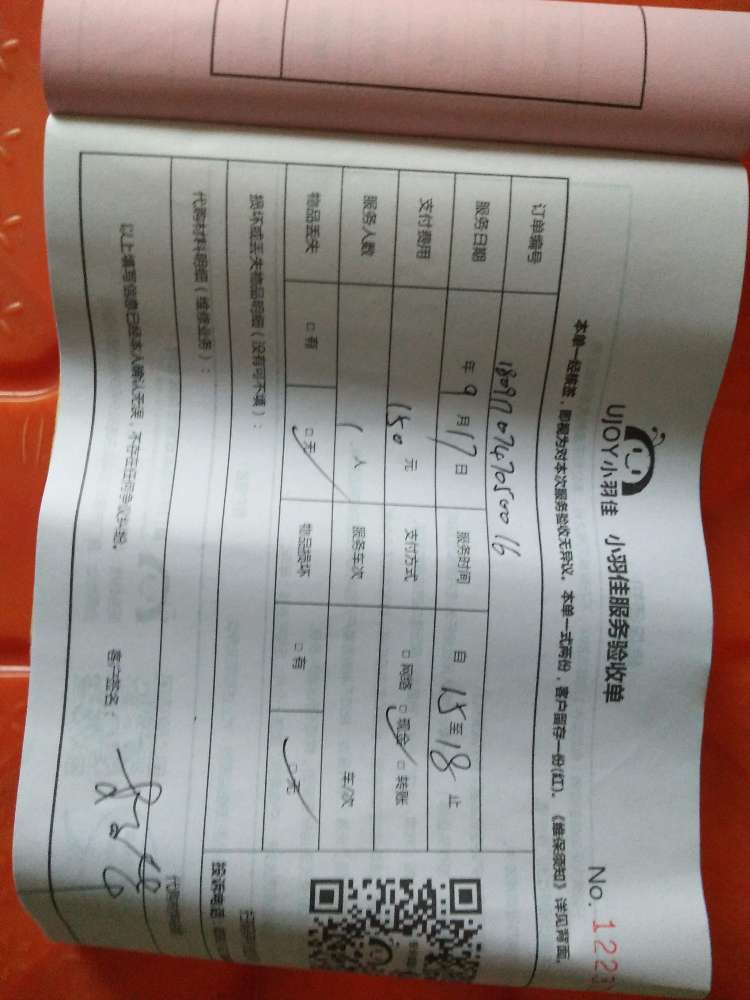 UJOY小羽佳 小羽佳服务验收单
No. 122
本单一经核签，即视为对本次服务验收无异议。本单一式两份，客户留存一份(红)。《维保须知》详见背面。
订单编号 18091707470500 16
服务日期 年 9 月 17 日 服务时间 自 15 至 18 止
支付费用 150 元 支付方式 □ 网络 □ 现金 □ 转账
服务人数 1 人 服务车次 车/次
物品丢失 □ 有 □ 无 物品损坏 □ 有 □ 无
损坏或丢失物品明细（没有可不填）：
投诉电话
代购材料明细（维修业务）：
以上填写信息已经本人确认无误，不存在任何争议纠纷。 客户签名：